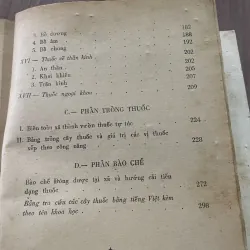 3. Bổ dương 165
4. Bổ âm 188
5. Bổ nhong 192
XVI — Thuốc về thần kinh 202
1. An thần 202
2. Khai khiếu 205
3. Trấn kinh 207
XVII — Thuốc ngoại khoa 209
C.— PHẦN TRỒNG THUỐC
I. Biến toàn xã thành vườn thuốc tự túc 224
II. Bảng trồng cây thuốc và giá trị các vị thuốc
xếp theo công năng 228
D.— PHẦN BÀO CHẾ
Bào chế đông dược tại xã và hướng cải tiến
dạng thuốc 272
Bảng tra cứu các cây thuốc bằng tiếng Việt kèm
theo tên khoa học 296